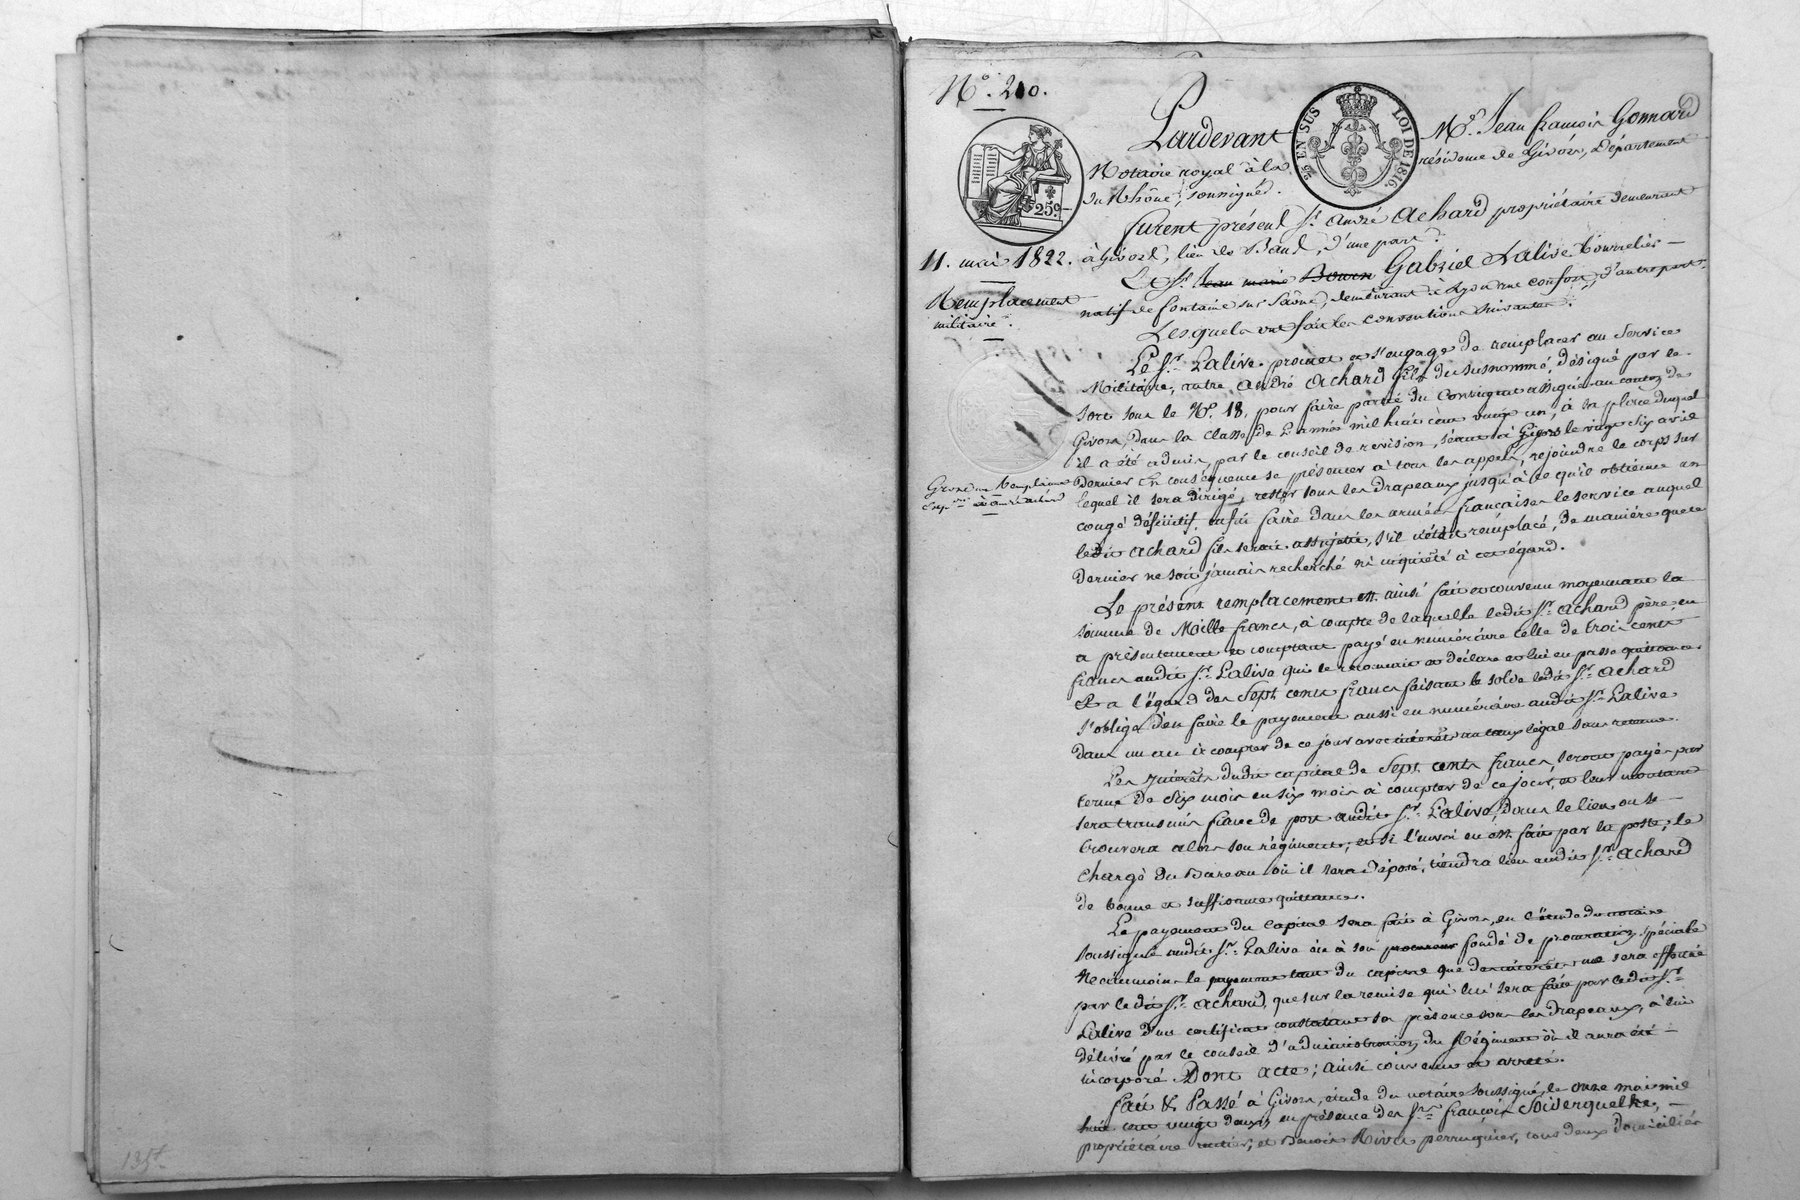 N.° 210.
Pardevant
M.e Jean françois Gonnard
25 EN SUS
LOI DE 1816.
25 c.
Notaire royal à la résidence de Givors, Département
du Rhône, soussigné.
furent présent S.r André Achard propriétaire demeurant
à Givors, lieu des d'une part.
11. mai 1822.
Et S.r Jean marie Gabriel Lalive tourrelier
Remplacement
militaire.
natif de fontaine sur Saône, demeurant à Lyon d'autre part.
Lesquels ont fait les conventions suivantes.
Le S.r Lalive promet et s'engage de remplacer au service
Militaire, André Achard fils du susnommé, désigné par le
sort sous le N.° 18. pour faire partie du Contingent assigné au canton de
Givors, dans la classe de l'année mil huit cent vingt un, à la place duquel
il a été admis par le conseil de revision, séant à le vingt six avril
dernier En conséquence se présenter à tous les appels, rejoindre le corps sur
lequel il sera dirigé, rester sous les drapeaux jusqu'à ce qu'il obtienne un
congé définitif, enfin faire dans les armées françaises le service auquel
ledit Achard fils seroit assujetti, s'il n'était remplacé, de manière que ce
dernier ne soit jamais recherché ni inquiété à cet égard.
Le présent remplacement est ainsi fait et convenu moyennant la
somme de Mille francs, à compte de laquelle ledit S.r Achard père, en
a présentement et comptant payé en numéraire celle de trois cents
francs audit S.r Lalive qui le reconnait et déclare et lui en passe quittance
Et a l'égard des Sept cents francs faisant le solde ledit S.r Achard
s'oblige d'en faire le payement aussi en numéraire audit S.r Lalive
dans un an à compter de ce jour avec intérêts au taux légal sans retenue.
Les Intérêts dudit capital de Sept cents francs, seront payés par
terme de six mois en six mois à compter de ce jour, et leur montant
sera transmis franc de port audit S.r Lalive, dans le lieu ou se
trouvera alors son régiment, et si l'envoi en est fait par la poste, le
chargé du Bureau où il sera déposé, tiendra lieu audit S.r Achard
de bonne et suffisante quittance.
Le payement du capital sera fait à Givors, en l'étude du notaire
soussigné audit S.r Lalive ou à son procureur fondé de procuration spéciale
Néanmoins le payement tant du capital que des intérêts ne sera effectué
par ledit S.r Achard, que sur la remise qui lui sera faite par ledit S.r
Lalive d'un certificat constatant sa présence sous les drapeaux, à lui
délivré par le conseil d'administration du Régiment où il aura été
incorporé. Dont acte; ainsi convenu et arrêté.
fait & Passé à Givors, étude du notaire soussigné, le onze mai mil
huit cent vingt deux, en présence des S.rs françois
propriétaire rentier, et Benoit Rivet perruquier, tous deux domiciliés